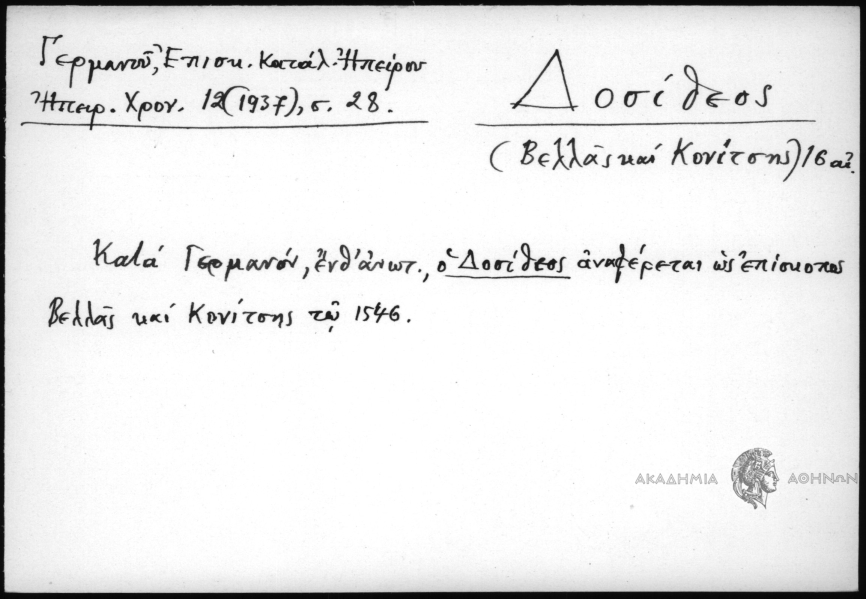 Γερμανοῦ, Ἐπισκ. Κατάλ. Ἠπείρου
Ἠπειρ. Χρον. 12(1937), σ. 28.
Δοσίθεος
(Βελλᾶς καί Κονίτσης) 16 αἰ.
Κατά Γερμανόν, ἔνθ' ἀνωτ., ὁ Δοσίθεος ἀναφέρεται ὡς ἐπίσκοπος
Βελλᾶς καί Κονίτσης τῷ 1546.
ΑΚΑΔΗΜΙΑ ΑΘΗΝΩΝ